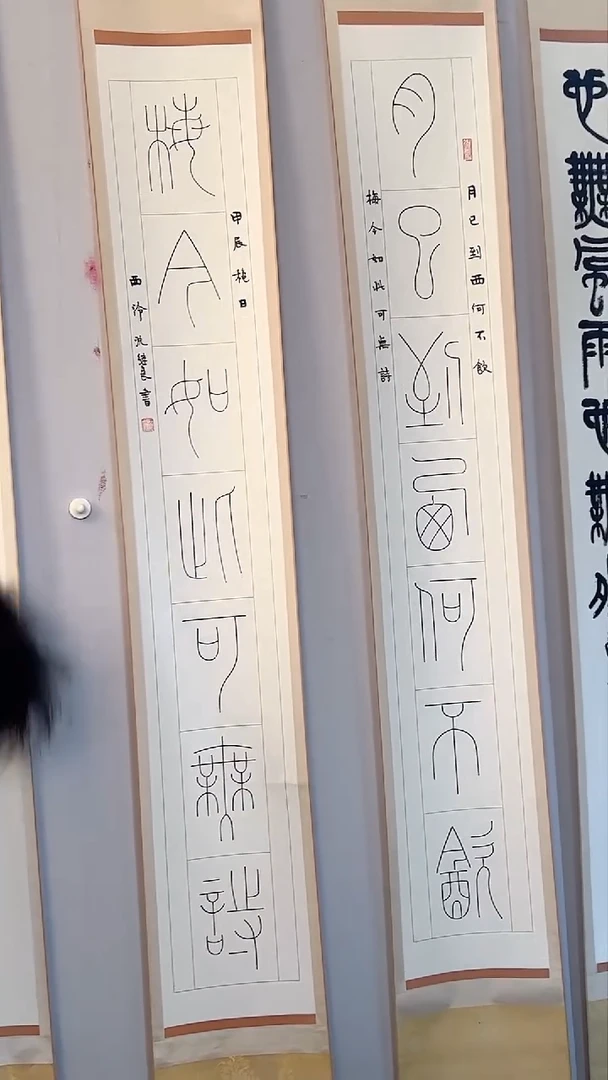 也無風雨也無
月已到西何不飲
月已到西何不飲
梅今如此可無詩
梅今如此可無詩
甲辰 日
西泠 書